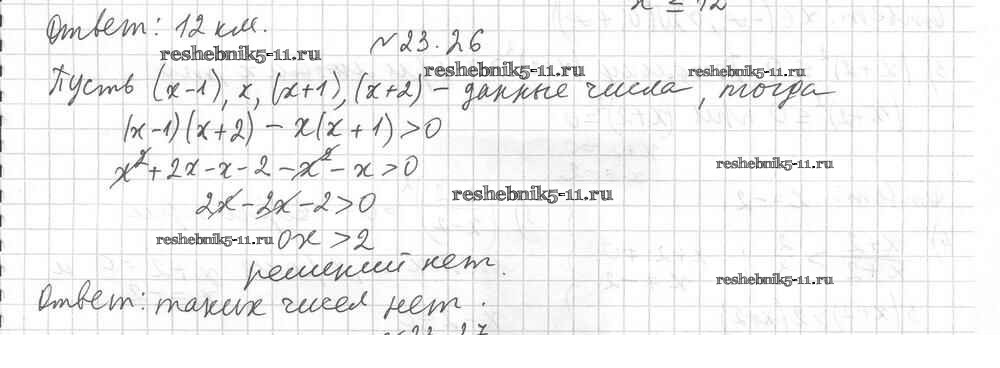 x ≤ 12
Ответ: 12 км.
№23.26
reshebnik5-11.ru
reshebnik5-11.ru
reshebnik5-11.ru
Пусть (x-1), x, (x+1), (x+2) - данные числа, тогда
(x-1)(x+2) - x(x+1) > 0
x² + 2x - x - 2 - x² - x > 0
reshebnik5-11.ru
reshebnik5-11.ru
2x - 2x - 2 > 0
reshebnik5-11.ru
0x > 2
решений нет.
reshebnik5-11.ru
Ответ: таких чисел нет.